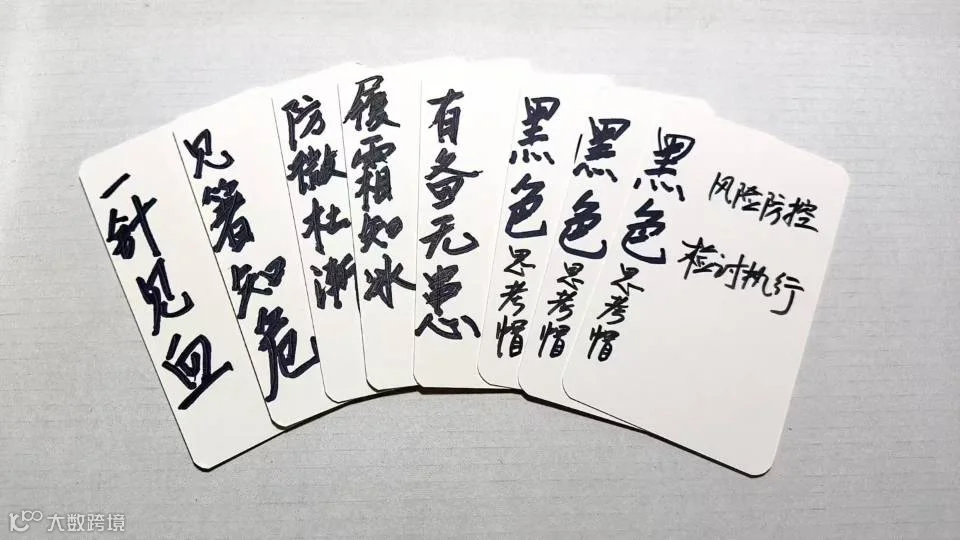 一针见血
见箸知危
防微杜渐
履霜知冰
有备无患
黑色思考帽
黑色思考帽
黑色思考帽
风险防控
检讨执行
大数跨境